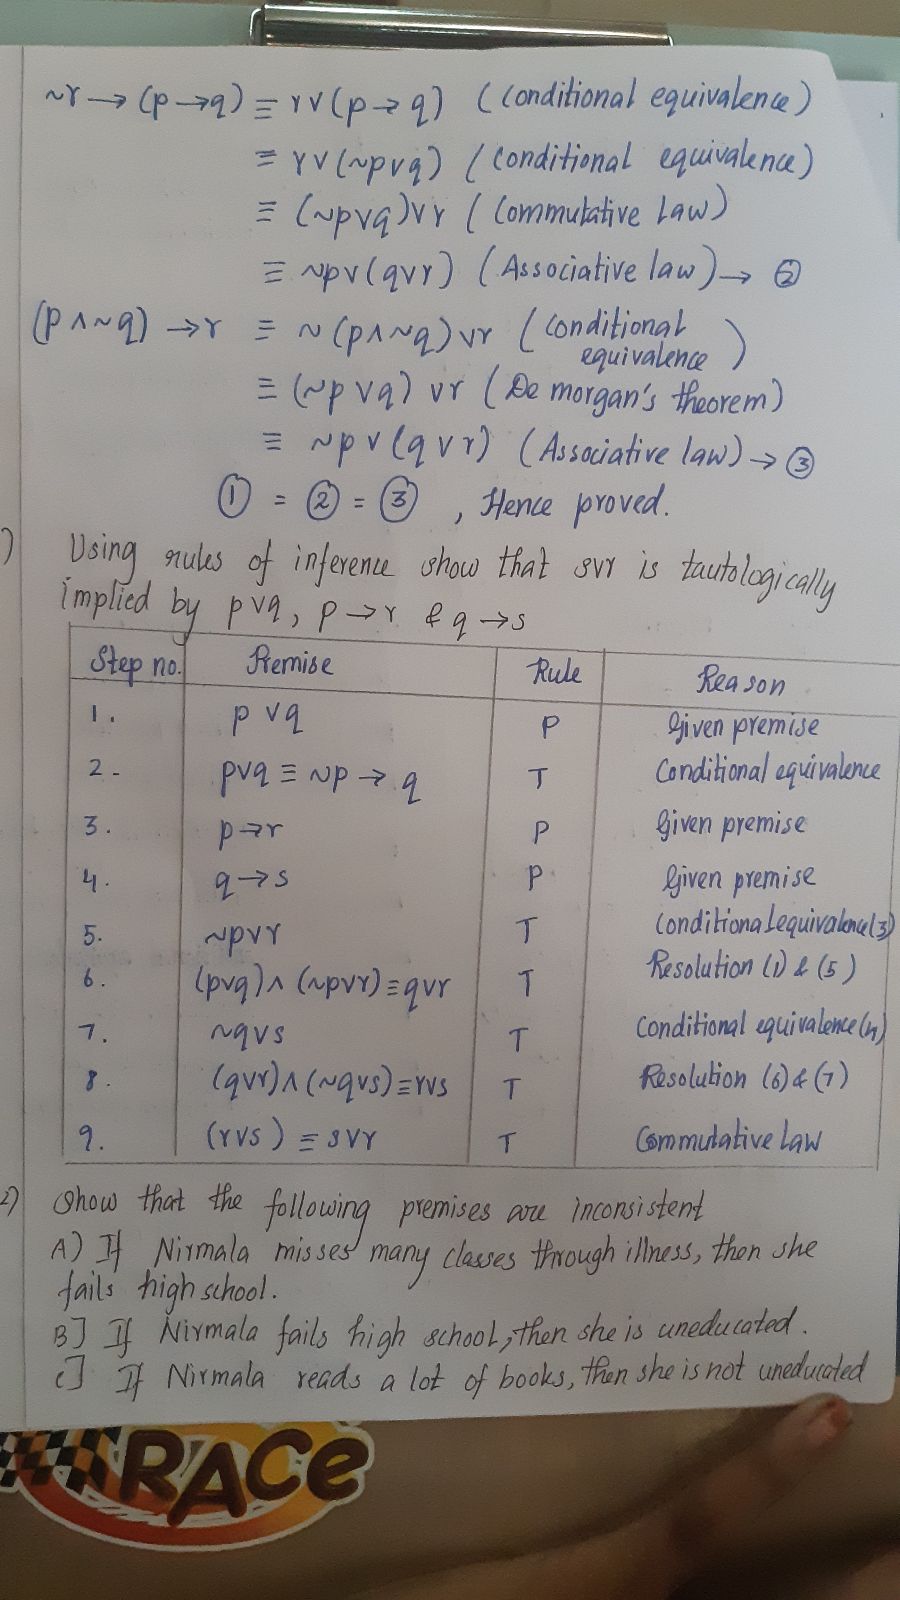 ~r → (p → q) ≡ r ∨ (p → q) (conditional equivalence)
≡ r ∨ (~p ∨ q) (conditional equivalence)
≡ (~p ∨ q) ∨ r (Commutative Law)
≡ ~p ∨ (q ∨ r) (Associative law) → ②
(p ∧ ~q) → r ≡ ~(p ∧ ~q) ∨ r (conditional equivalence)
≡ (~p ∨ q) ∨ r (De morgan's theorem)
≡ ~p ∨ (q ∨ r) (Associative law) → ③
① = ② = ③ , Hence proved.
) Using rules of inference show that s∨r is tautologically
implied by p∨q, p → r & q → s
Step no. Premise Rule Reason
1. p ∨ q P Given premise
2- p∨q ≡ ~p → q T Conditional equivalence
3. p → r P Given premise
4. q → s P Given premise
5. ~p∨r T Conditional equivalence (3)
6. (p∨q) ∧ (~p∨r) ≡ q∨r T Resolution (1) & (5)
7. ~q∨s T Conditional equivalence (4)
8. (q∨r) ∧ (~q∨s) ≡ r∨s T Resolution (6) & (7)
9. (r∨s) ≡ s∨r T Commutative Law
2) Show that the following premises are inconsistent
A) If Nirmala misses many classes through illness, then she
fails high school.
B] If Nirmala fails high school, then she is uneducated.
c] If Nirmala reads a lot of books, then she is not uneducated
RACe